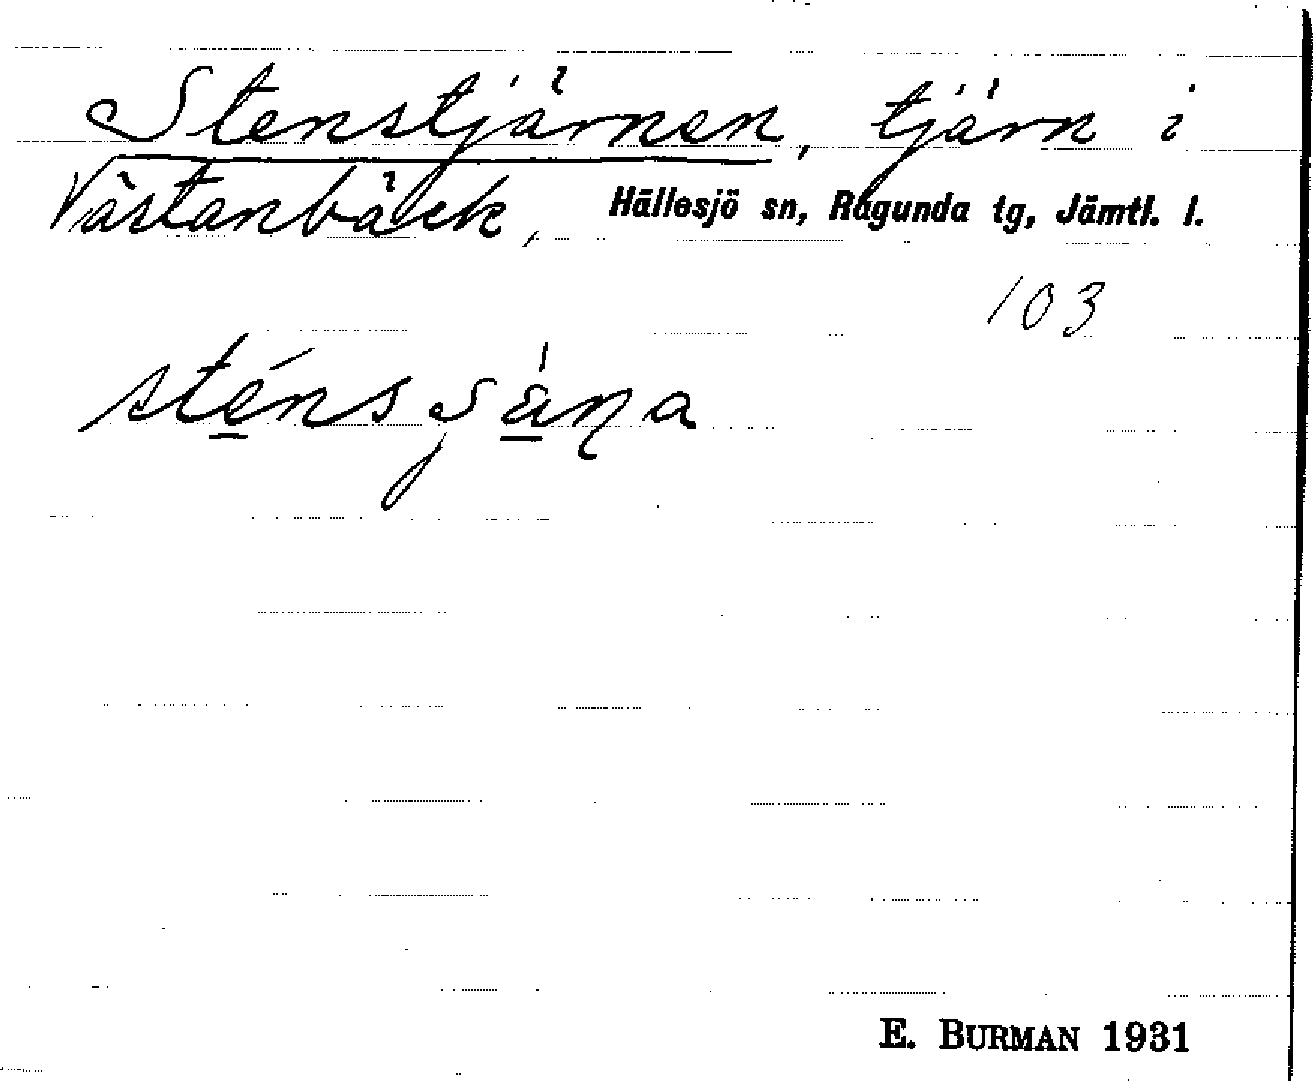 Stenstjärnen, tjärn i
Västanbäck, Hällesjö sn, Ragunda tg, Jämtl. l.
103
E. BURMAN 1931